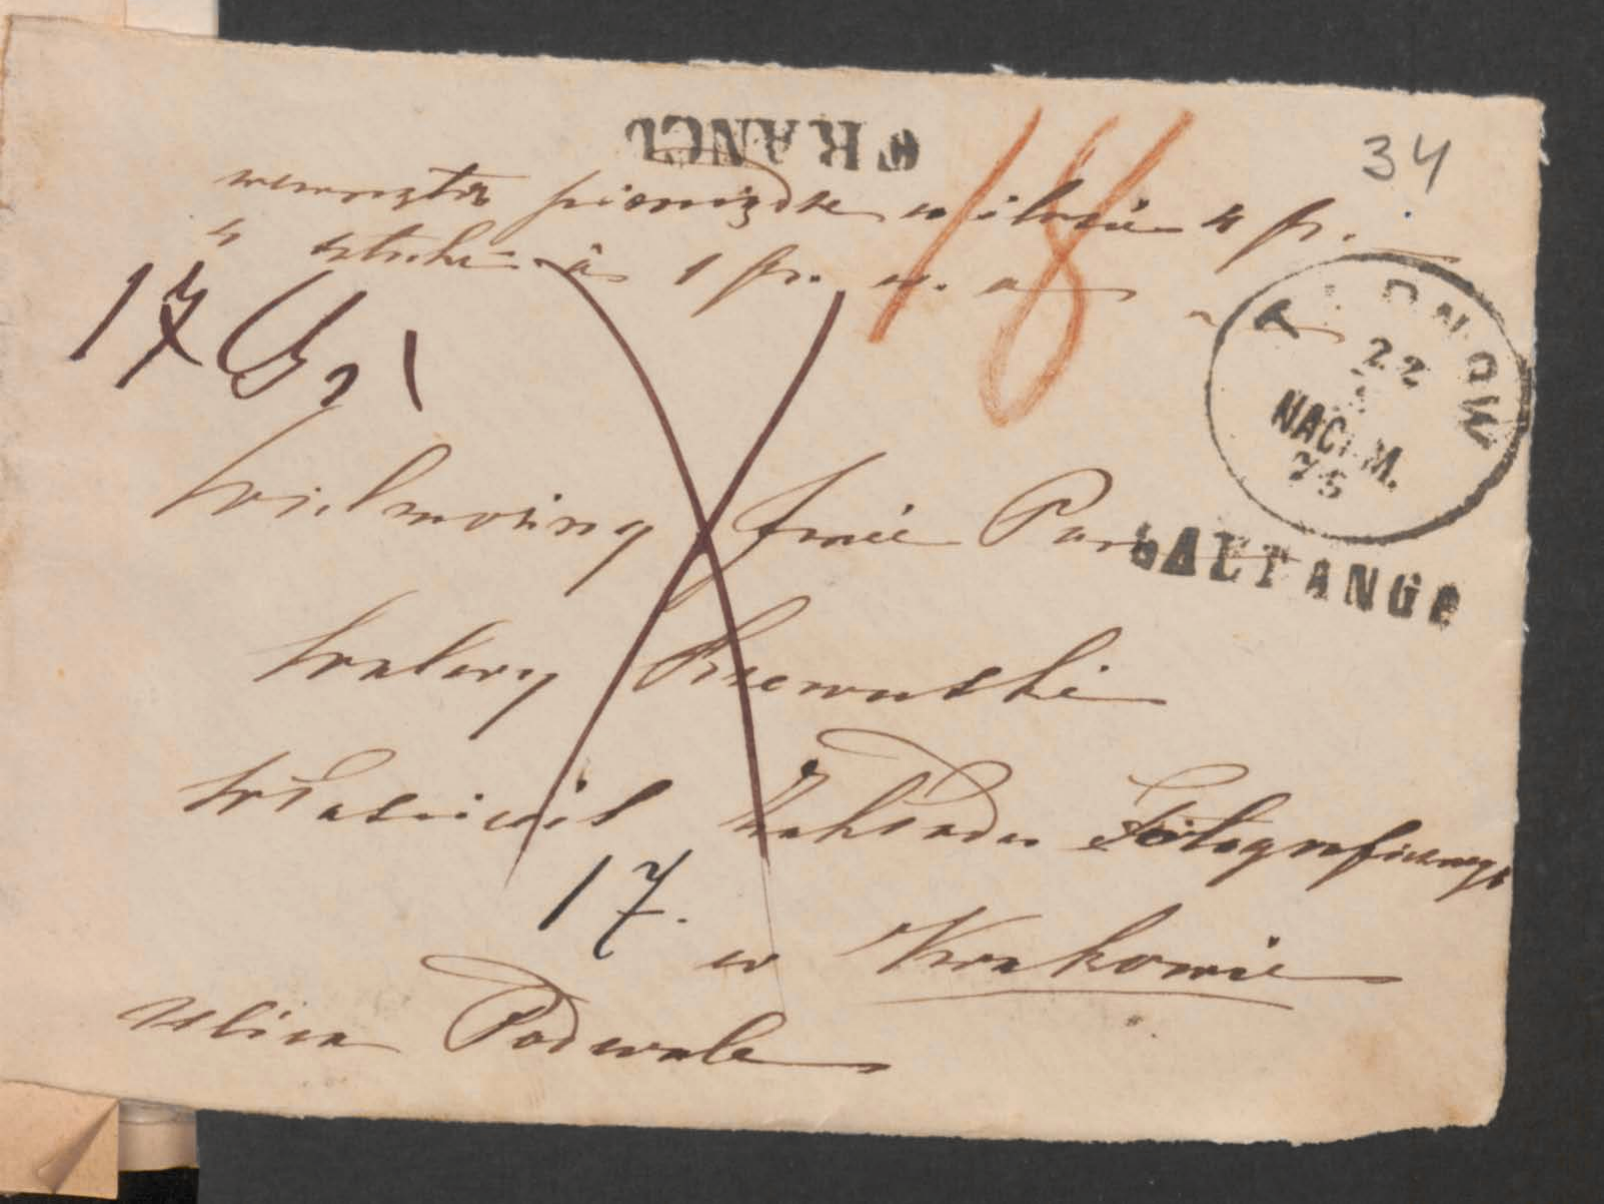 FRANCO
18
34
wewnątrz pieniądze w ilości 4 fr.
4 sztuki à 1 fr. w. a
17
TARNOW
22
NACHM.
75
Wielmożny Jmić Pan
Walery Rzewuski
właściciel Zakładu Fotograficznego
17.
w Krakowie
ulica Podwale